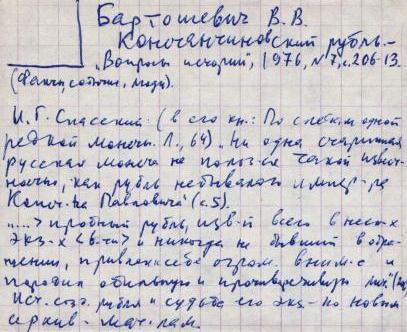 Бартошевич В.В.
Константиновский рубль.–
„Вопросы истории”, 1976, №7, с. 206-13.
(Факты, события, люди).
И.Г. Спасский (в его кн.: По следам одной
редкой монеты. Л., 64) „Ни одна старинная
русская монета не польз-ся такой извест-
ностью, как рубль небывалого импер-ра
Конст-на Павловича” (с.5).
„....> пробный рубль, изв-й всего в неск-х
экз-х <6-ти> и никогда не бывший в обра-
щении, привлек к себе огром. вним-е и
породил обильную и противоречивую лит.”
Ист. созд. рубля и судьба его экз- по новым
архив. мат-лам.